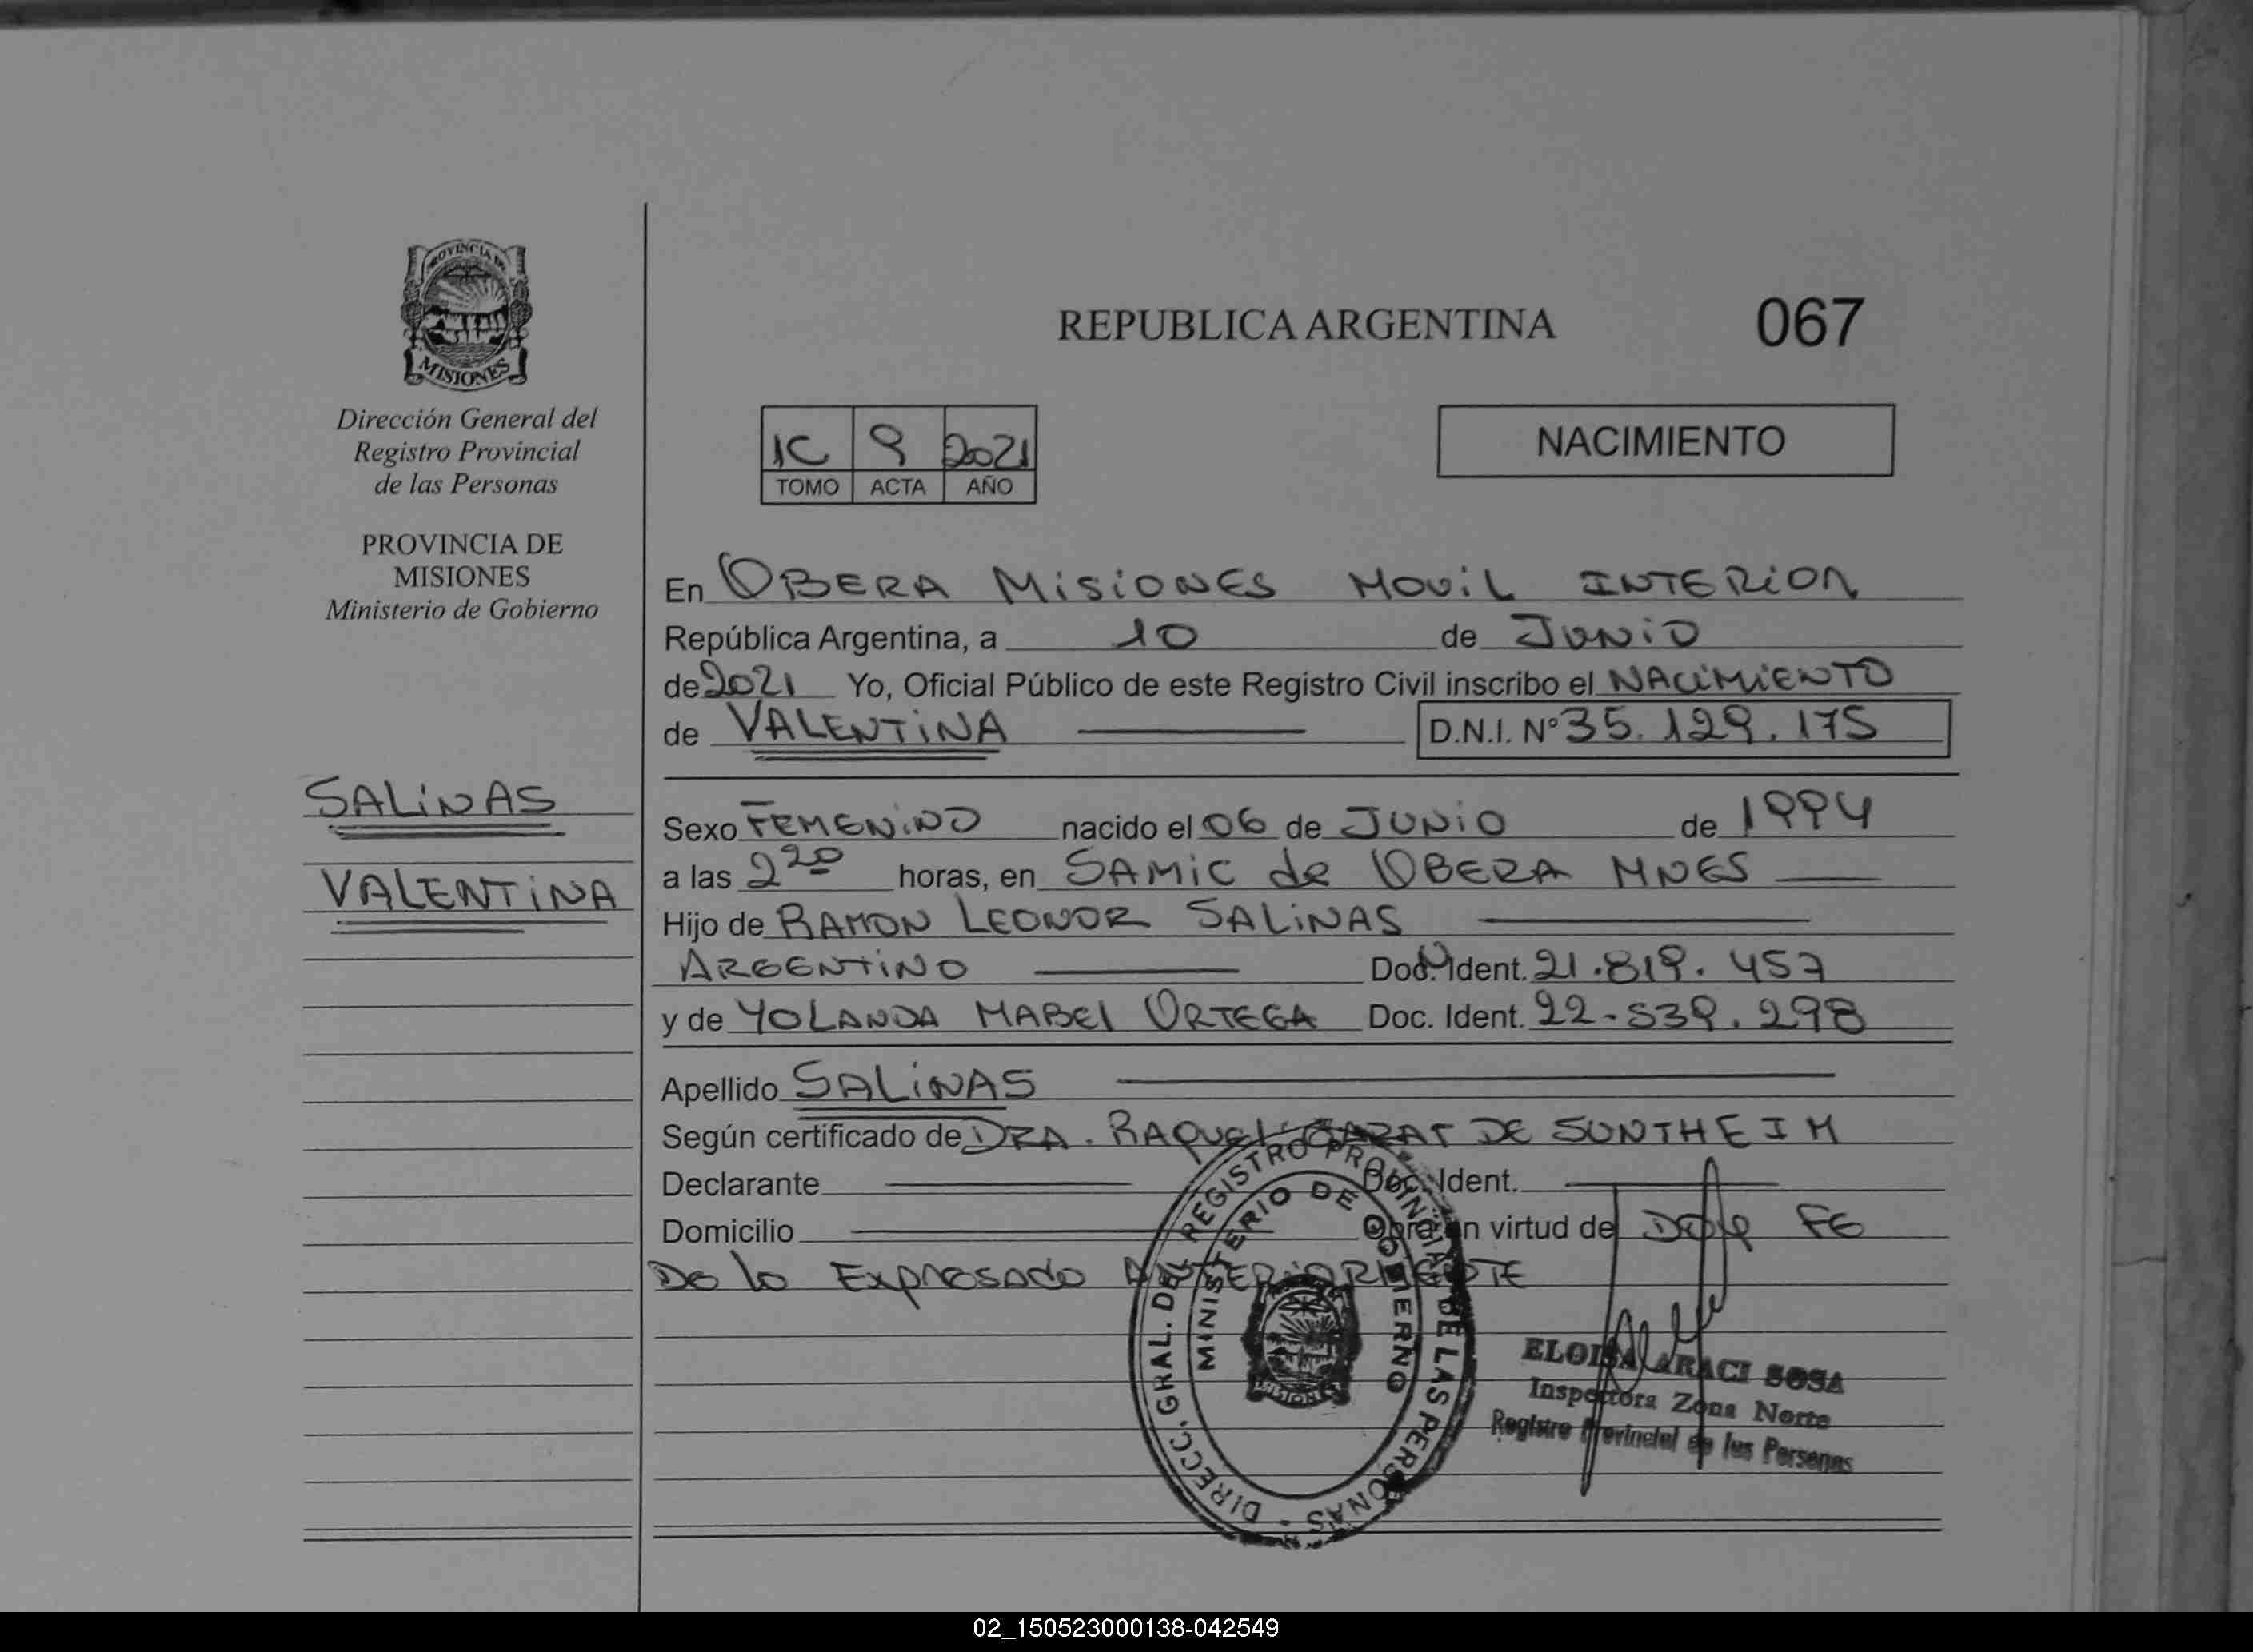 PROVINCIA DE
MISIONES
Dirección General del
Registro Provincial
de las Personas
PROVINCIA DE
MISIONES
Ministerio de Gobierno
SALINAS
VALENTINA
REPUBLICA ARGENTINA 067
1C 9 2021
TOMO ACTA AÑO
NACIMIENTO
En OBERA MISIONES MOVIL INTERIOR
República Argentina, a 10 de JUNIO
de 2021 Yo, Oficial Público de este Registro Civil inscribo el NACIMIENTO
de VALENTINA D.N.I. Nº 35.129.175
Sexo FEMENINO nacido el 06 de JUNIO de 1994
a las 2 20 horas, en SAMIC de OBERA MNES
Hijo de RAMON LEONOR SALINAS
ARGENTINO Doc. Ident. 21.819.457
y de YOLANDA MABEL ORTEGA Doc. Ident. 22-539.298
Apellido SALINAS
Según certificado de DRA. RAQUEL DE SUNTHEIM
Declarante Doc. Ident.
Domicilio Obra en virtud de DOY FE
De lo Expresado ANTERIORMENTE
DIRECC. GRAL. DEL REGISTRO PROVINCIAL DE LAS PERSONAS -
MINISTERIO DE GOBIERNO
MISIONES
ELOISA ARACI SOSA
Inspectora Zona Norte
Registro Provincial de las Personas
02_150523000138-042549